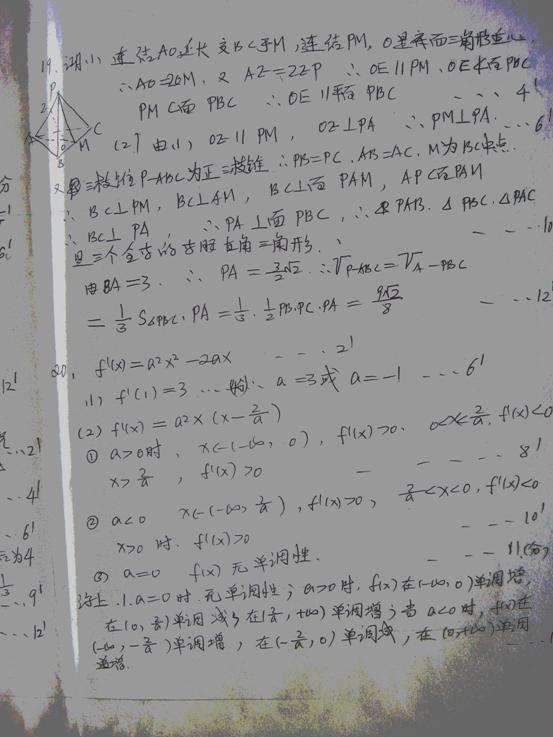 19. 证明(1) 连结AO延长交BC于M,连结PM,O是底面三角形重心
∴AO=2OM, 又 AE=2EP ∴OE∥PM, OE⊄面PBC
PM⊂面PBC ∴OE∥平面PBC ---- 4'
(2) 由(1), OE∥PM, OE⊥PA ∴PM⊥PA. --- 6'
又三棱锥P-ABC为正三棱锥 ∴PB=PC, AB=AC, M为BC中点.
∴BC⊥PM, BC⊥AM, BC⊥面PAM, AP⊂面PAM
∴BC⊥PA, ∴PA⊥面PBC, ∴△PAB, △PBC, △PAC
是三个全等的等腰直角三角形, --- 10
由BA=3. ∴PA=3/2√2. ∴V_{P-ABC}=V_{A-PBC}
=1/3 S_{△PBC}·PA=1/3·1/2PB·PC·PA=9√2/8 --- 12'
20, f'(x)=a²x²-2ax --- 2'
(1) f'(1)=3 ... ∴ a=3或a=-1 --- 6'
(2) f'(x)=a²x(x-2/a)
① a>0时, x∈(-∞, 0), f'(x)>0. 0<x<2/a, f'(x)<0
x>2/a, f'(x)>0 ------ 8'
② a<0 x∈(-∞, 2/a), f'(x)>0, 2/a<x<0, f'(x)<0
x>0 时. f'(x)>0 --- 10'
③ a=0 f(x) 无单调性. --- 11分
综上, a=0时. 无单调性; a>0时. f(x)在(-∞, 0)单调增,
在(0, 2/a)单调减, 在(2/a, +∞)单调增; 当a<0时, f(x)在
(-∞, -2/a)单调增, 在(-2/a, 0)单调减, 在(0,+∞)单调
递增.
12'
...2'
...4'
...6'
为4
...9'
...12'